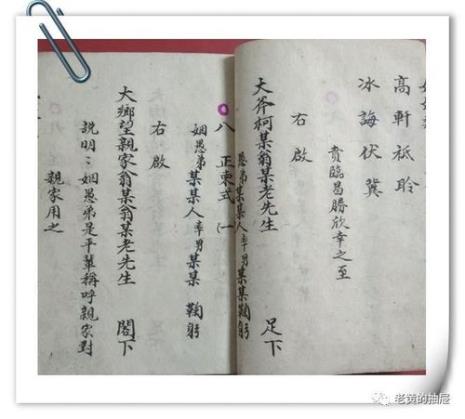 高軒祗聆
冰誨伏冀
賁臨昌勝欣幸之至
右啟
大斧柯某翁某老先生 足下
愚弟某某人率男某某鞠躬
八 正柬式 (一)
姻愚弟某某人率男某某 鞠躬
右啟
大鄉望親家翁某翁某老先生 閣下
說明：姻愚弟是平輩稱呼親家對
親家用之
老黄的抽屉